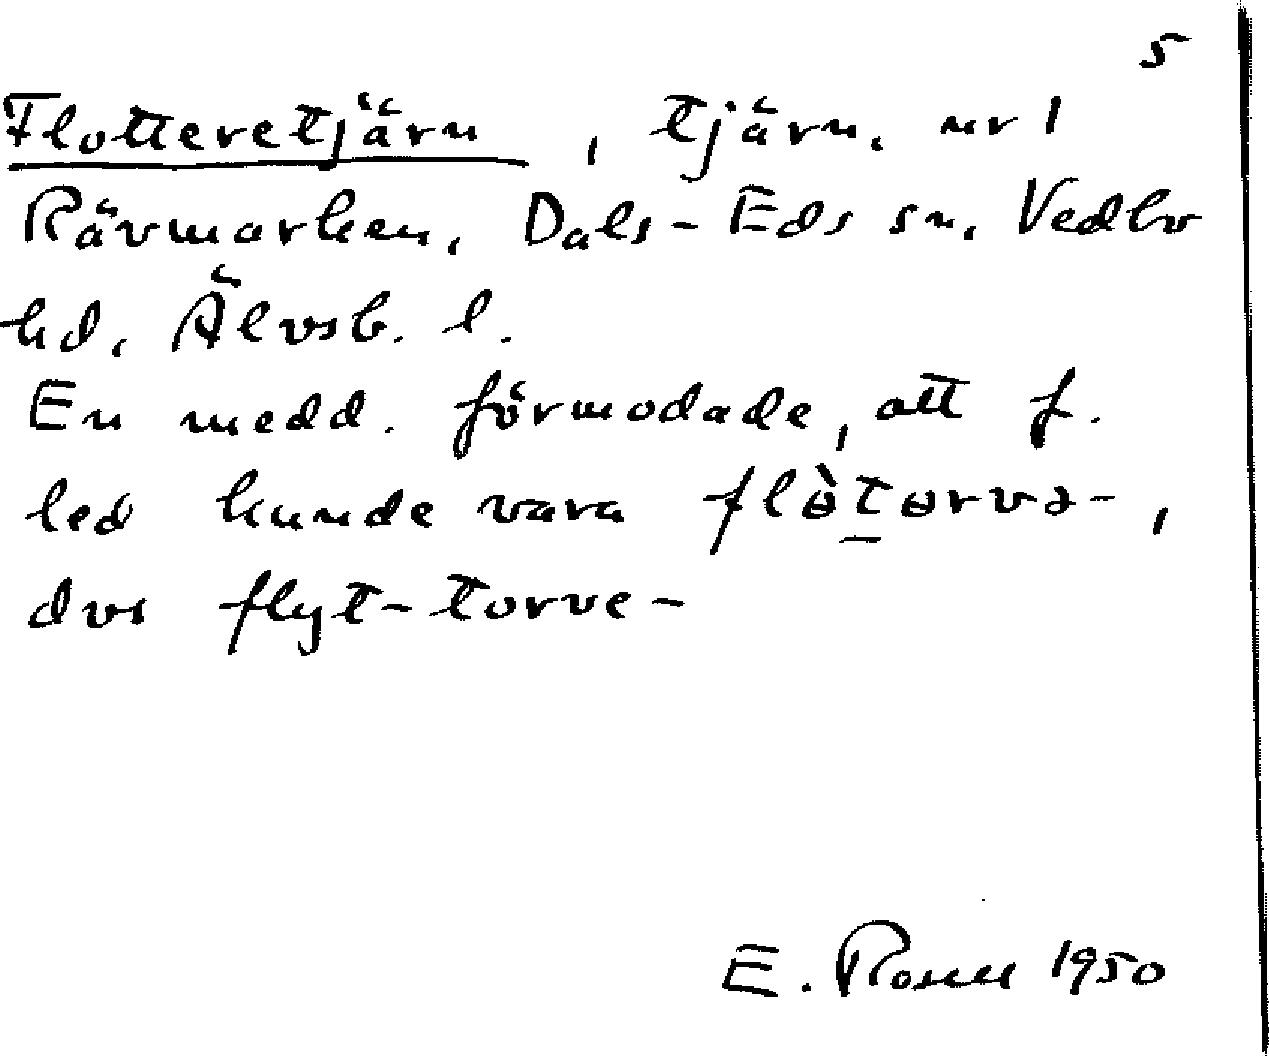 5
Flotteretjärn, tjärn, nr 1
Rävmarken, Dals-Eds sn, Vedbo
hd, Älvsb. l.
En medd. förmodade, att f.
led kunde vara flɵ̀tɵrvə-,
dvs flyt-torve-
E. Rosell 1950